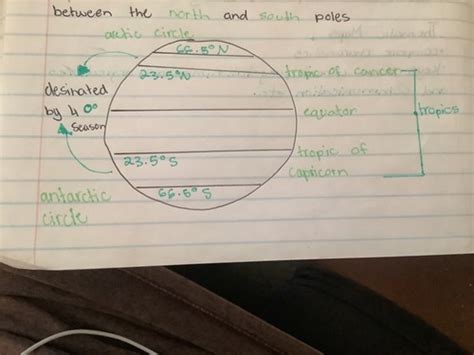 between the north and south poles
arctic circle
66.5°N
23.5°N
tropic of cancer
desinated
by 4 0°
season
equator
tropics
23.5°S
tropic of
capricorn
66.5°S
antarctic
circle